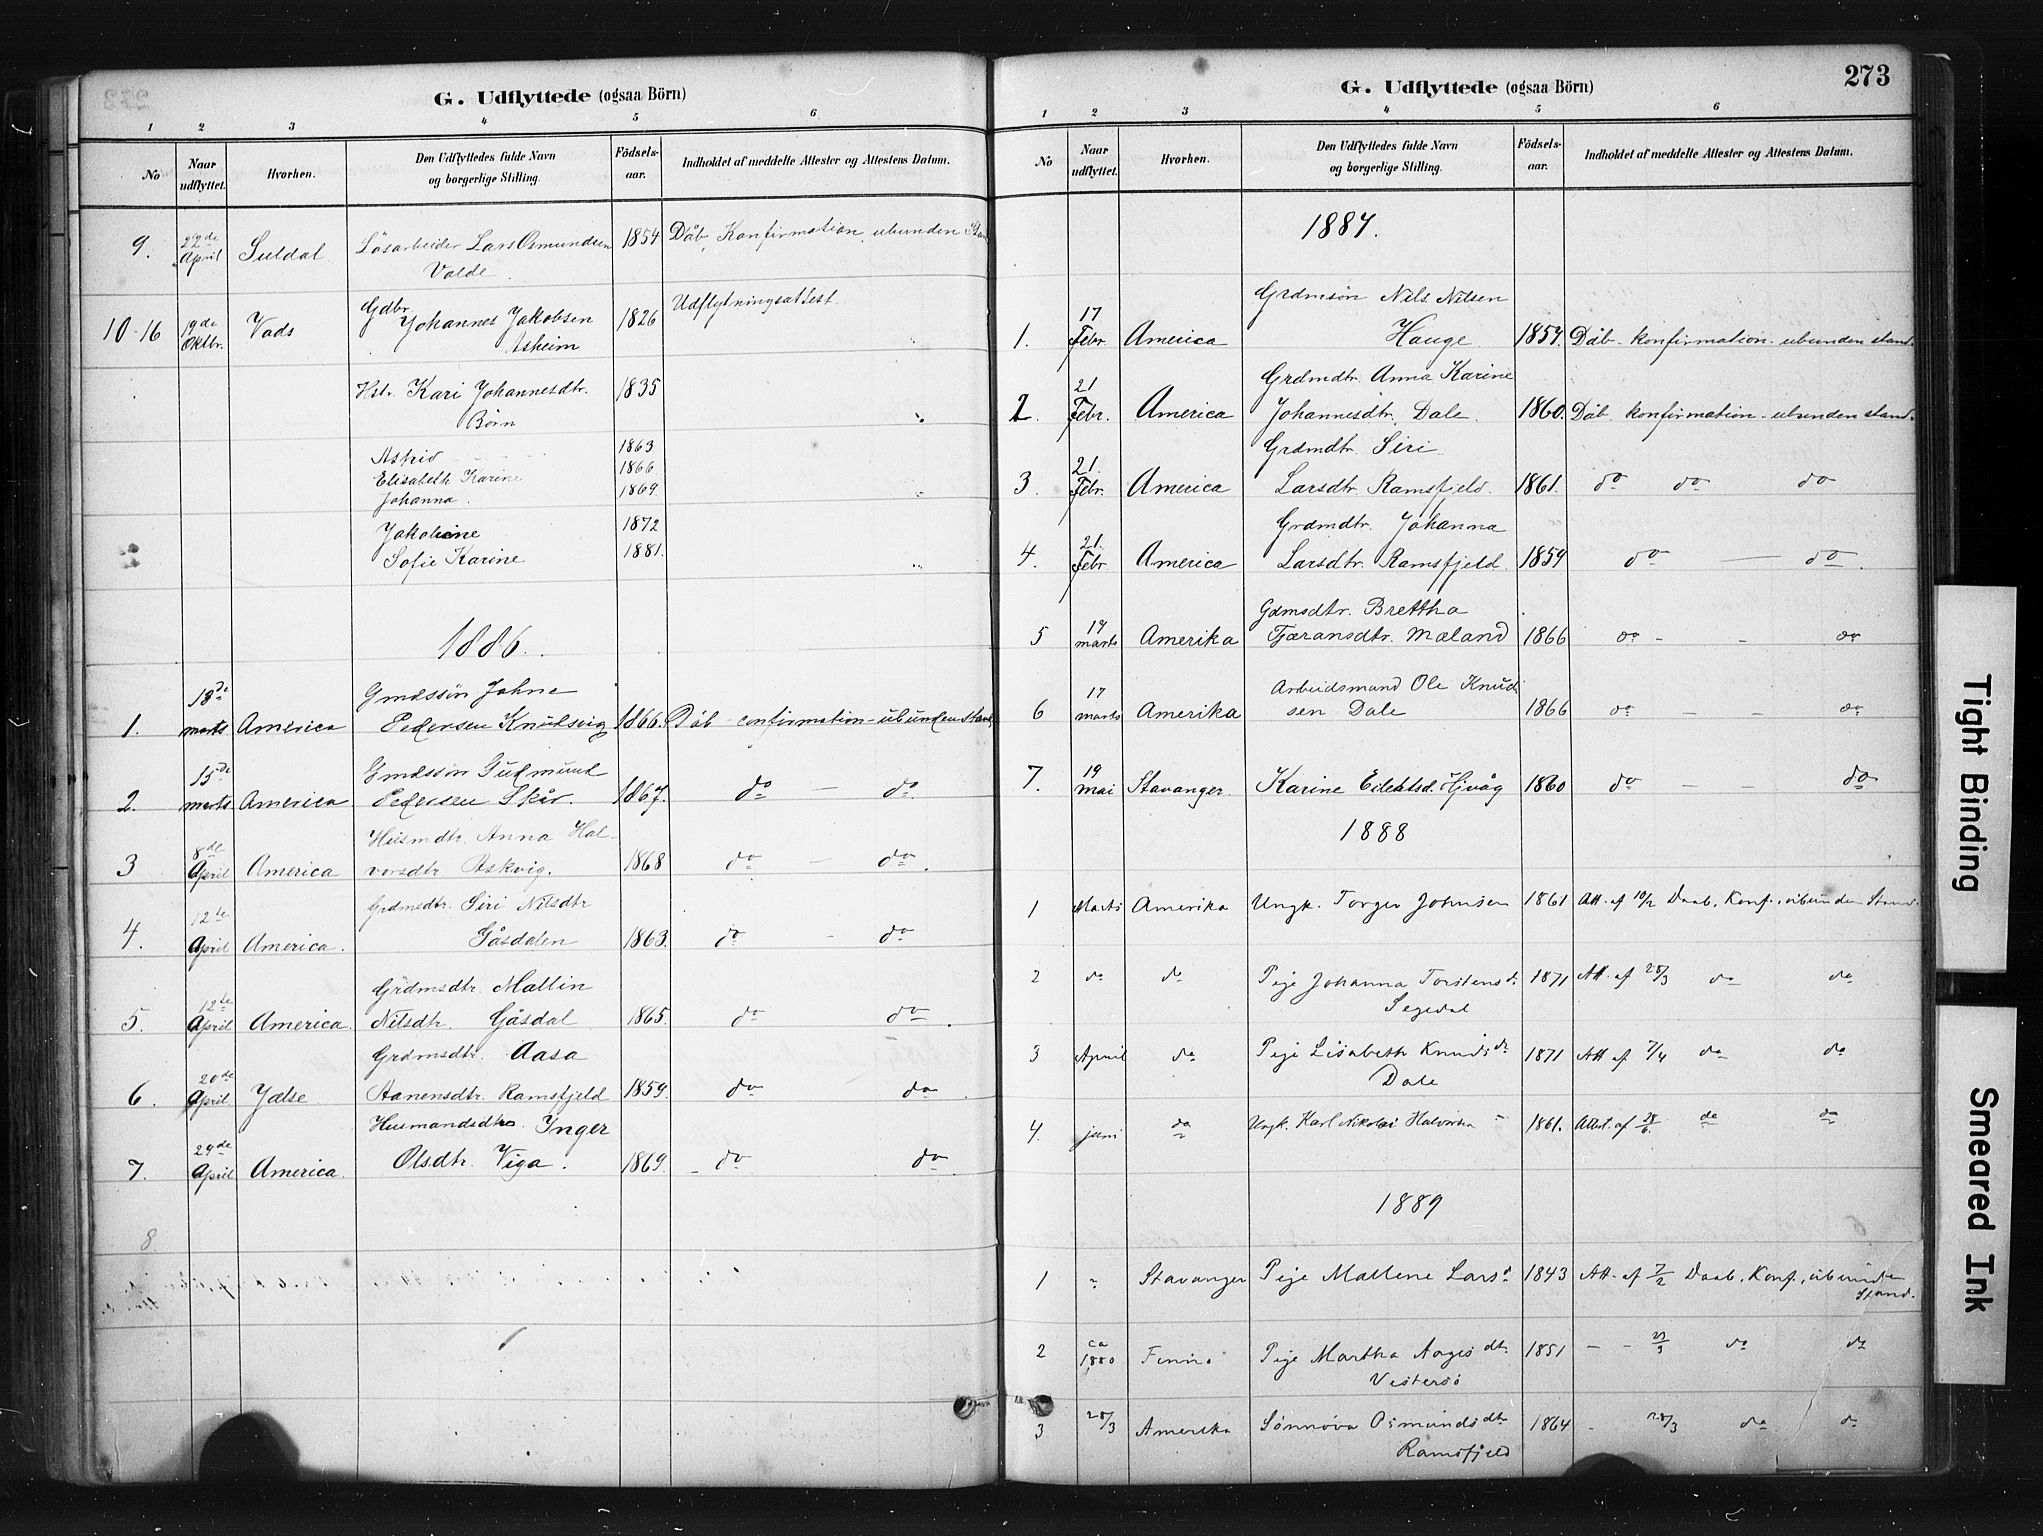 G. Udflyttede (ogsaa Börn)
1 2 3 4 5 6
No Naar udflyttet. Hvorhen. Den Udflyttedes fulde Navn og borgerlige Stilling. Födsels-aar. Indholdet af meddelte Attester og Attestens Datum.
9. 22de April Suldal Løsarbeider Lars Osmundsen 1854 Dåb, Konfirmation, ubunden
Valde.
10-16 19de Oktbr. Vads Gdbr. Johannes Jakobsen 1826 Udflytningsattest
Asheim
Hst. Kari Johannesdtr. 1835
Børn
Astrid 1863
Elisabeth Karine 1866
Johanna. 1869.
Jakobine 1872
Sofie Karine 1881.
1886.
18de Gmdssön Johne
1. marts America Pedersen Knutsvig 1866. Dåb - confirmation - ubunden stand
15de Gmdssön Gudmund
2. marts America Pedersen Skår. 1867. do — do
8de Husmdtr. Anna Hal-
3 April America vorsdtr. Askvig. 1868 do — do.
12te Grdmsdtr. Siri Nilsdtr
4. April America. Gåsdalen 1863. do - do
12te Grdmsdtr. Mallin
5. April America. Nilsdtr. Gåsdal 1865. do do.
20de Grdmsdtr. Aasa
6. April Jælse Aanensdtr. Ramsfjeld 1859. do do
29de Husmandsdtr. Inger
7. April America. Olsdtr. Viga. 1869. - do do
8
G. Udflyttede (ogsaa Börn) 273
1 2 3 4 5 6
No Naar udflyttet. Hvorhen. Den Udflyttedes fulde Navn og borgerlige Stilling. Födsels-aar. Indholdet af meddelte Attester og Attestens Datum.
1887.
17 Grdmsön Nils Nilsen
1. Febr. America Hauge 1857. Dåb - konfirmation - ubunden stand.
21 Grdmdtr. Anna Karine
2. Febr. America Johannesdtr. Dale. 1860. Dåb - konfirmation - ubunden stand.
21. Grdmdtr. Siri
3. Febr. America Larsdtr. Ramsfjeld. 1861. do do do
21. Grdmdtr. Johanna
4. Febr. America Larsdtr. Ramsfjeld. 1859 do — do.
19 Gdmsdtr. Brettha
5 marts Amerika Tjæransdtr. Mæland 1866 do - - do
17 Arbeidsmand Ole Knud-
6 marts Amerika sen Dale 1866 do - - do
7. 19 mai Stavanger. Karine Eilertsd. Hjvåg 1860 do - - do
1888
1 Marts Amerika Ungk. Torger Johnsen 1861 Att. af 10/2 Daab, Konf., ubunden Stand.
2 do do Pige Johanna Torstensd. 1871 Att. af 28/3 do do
Segedal
3 April do Pige Lisabeth Knudsdr 1871 Att af 7/4 do do
Dale
4. juni do Ungk. Karl Nikolai Halvorsen 1861. Attest. af 28/6. do do
1889
1 " Stavanger Pige Mallene Larsd. 1843 Att. af 7/2 Daab, Konf., ubunden
Stand.
2 ca 1880 Pige Martha Aagesdtr 1851 - - do do
Vestersø
3 28/3 Amerika Sønnøva Osmundsdtr 1864 - 28/3 do do
Ramsfjeld
Tight Binding
Smeared Ink